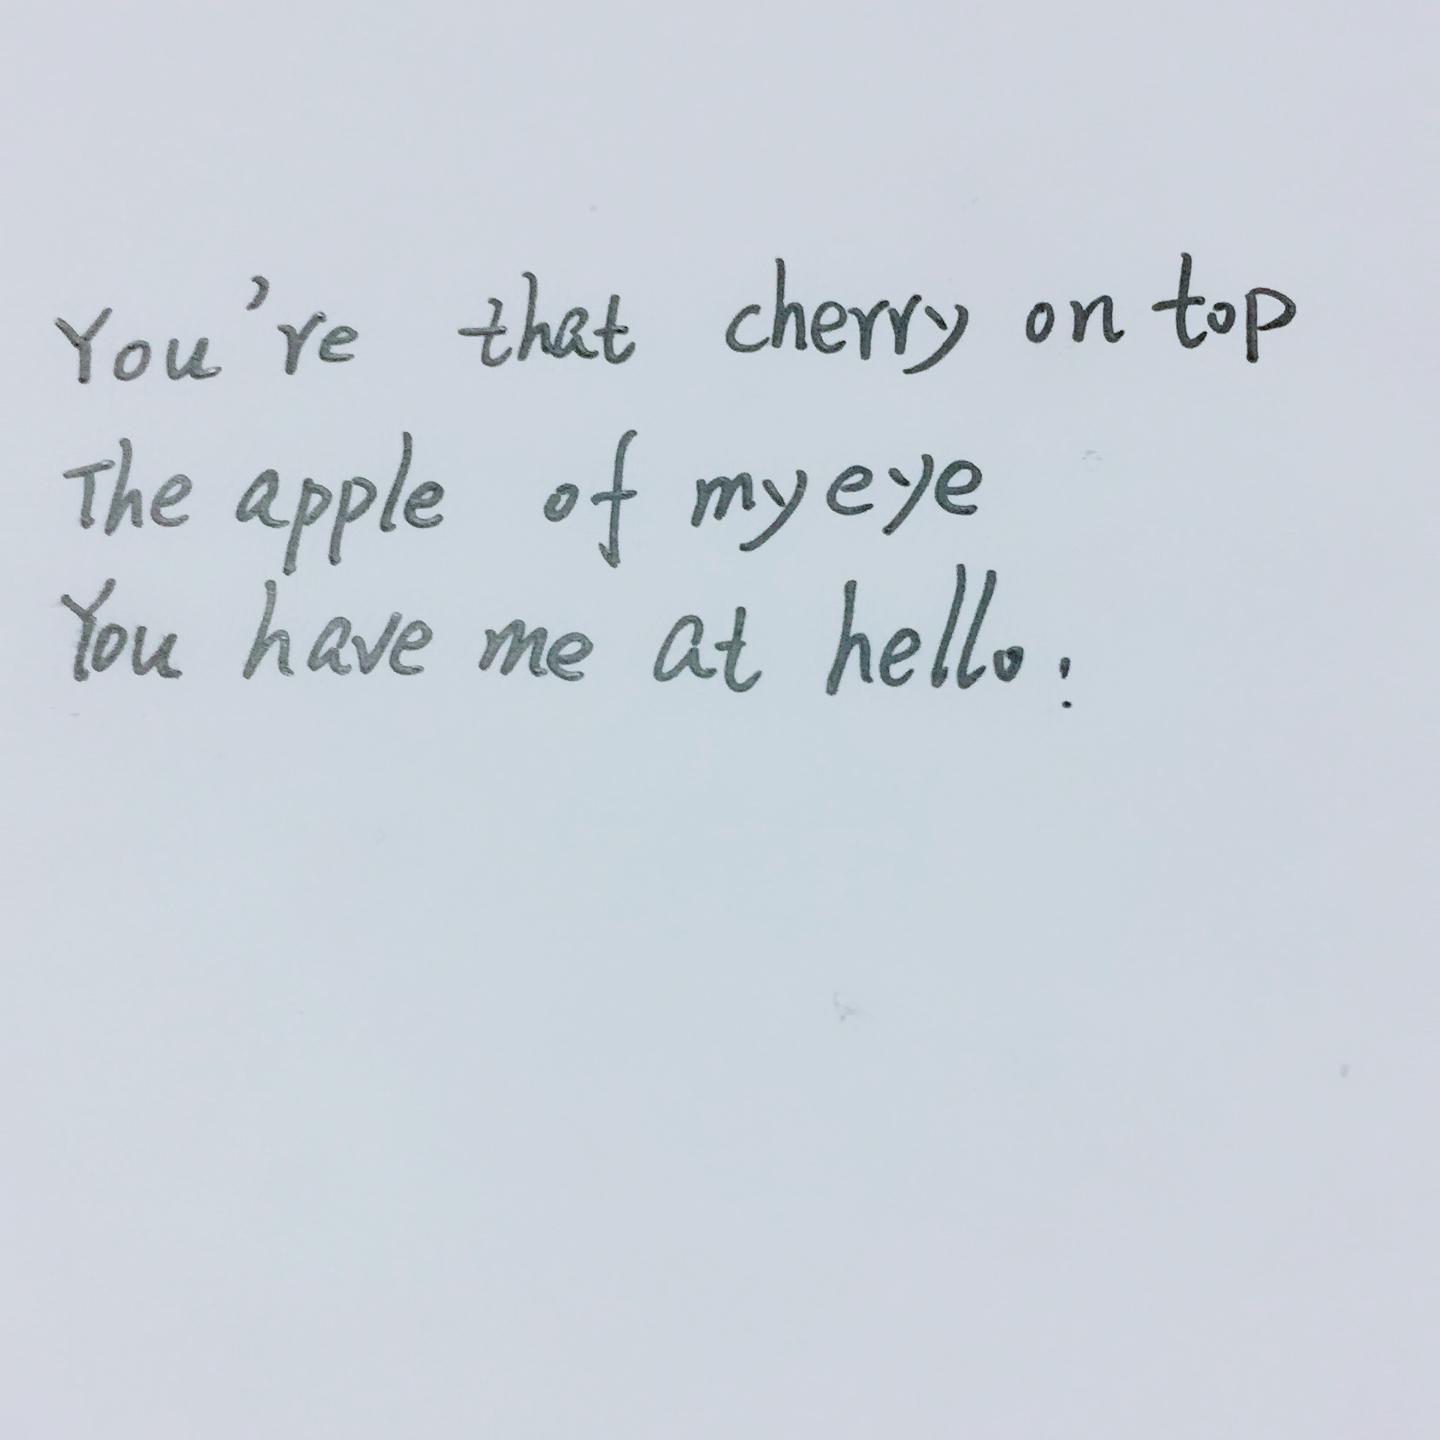 You're that cherry on top
The apple of my eye
You have me at hello!